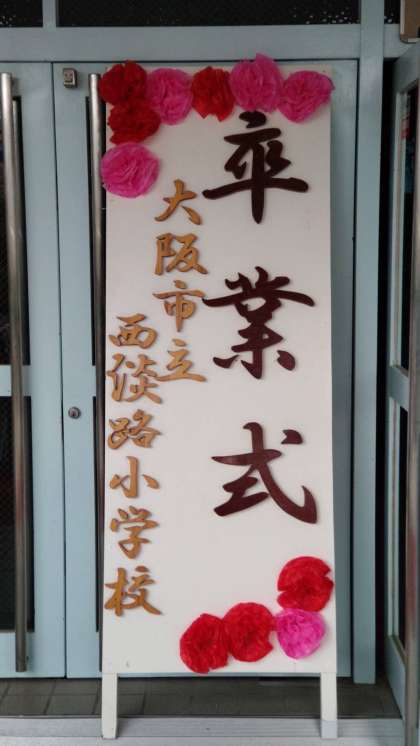 卒業式
大阪市立
西淡路小学校